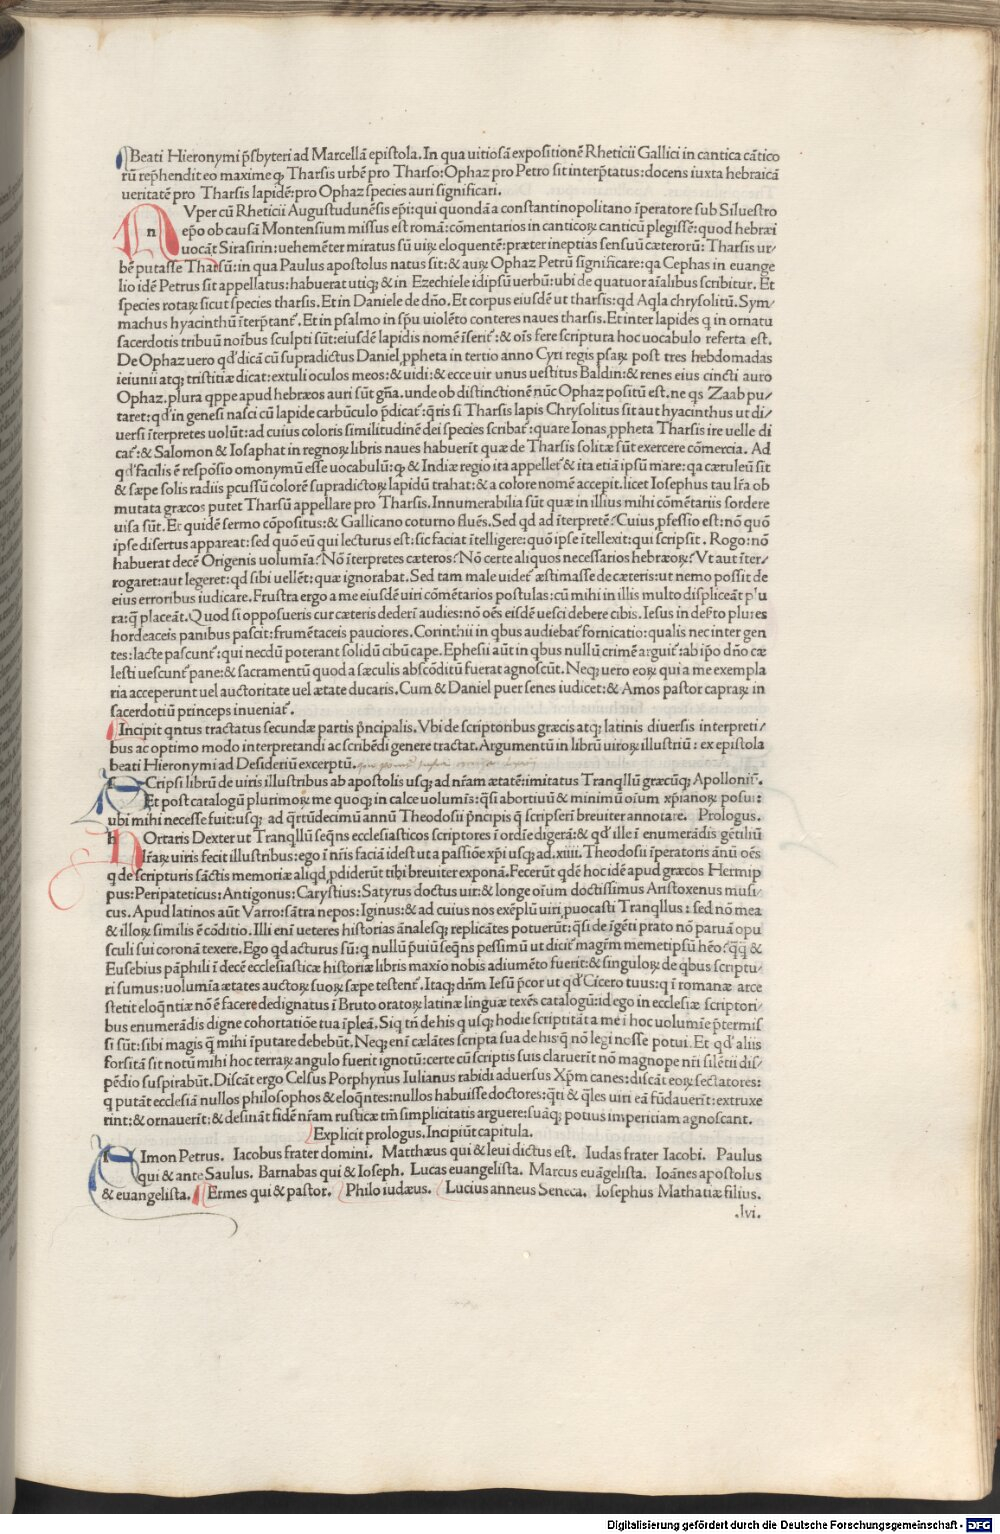 Beati Hieronymi p̄sbyteri ad Marcellā epistola. In qua uitiosā expositionē Rheticii Gallici in cantica cātico
rū rep̄hendit eo maxime ꝙ Tharsis urbē pro Tharso: Ophaz pro Petro sit interp̄tatus: docens iuxta hebraicā
ueritatē pro Tharsis lapidē: pro Ophaz species auri significari.
n Vper cū Rheticii Augustudunēsis ep̄i: qui quondā a constantinopolitano īperatore sub Siluestro
ep̄o ob causā Montensium missus est romā: cōmentarios in canticoꝝ canticū plegissē: quod hebræi
uocāt Sirasirin: uehemēter miratus sū uiꝝ eloquentē: præter ineptias sensuū cæterorū: Tharsis ur-
bē putasse Tharsū: in qua Paulus apostolus natus sit: & auꝝ Ophaz Petrū significare: qa Cephas in euange
lio idē Petrus sit appellatus: habuerat utiqꝫ & in Ezechiele idipsū uerbū: ubi de quatuor aīalibus scribitur. Et
species rotaꝝ sicut species tharsis. Et in Daniele de dn̄o. Et corpus eiusdē ut tharsis: qd Aqla chrysolitū. Sym-
machus hyacinthū īterp̄tant̄. Et in psalmo in sp̄u uiolēto conteres naues tharsis. Et inter lapides q in ornatu
sacerdotis tribuū noībus sculpti sūt: eiusdē lapidis nomē īserit̄: & oīs fere scriptura hoc uocabulo referta est.
De Ophaz uero qd dicā cū supradictus Daniel ꝓpheta in tertio anno Cyri regis psaꝝ post tres hebdomadas
ieiunii atqꝫ tristitiæ dicat: extuli oculos meos: & uidi: & ecce uir unus uestitus Baldin: & renes eius cincti auro
Ophaz. plura qppe apud hebræos auri sūt gn̄a. unde ob distinctionē nūc Ophaz positū est. ne qs Zaab pu-
taret: qd in genesi nasci cū lapide carbūculo p̄dicat̄: q̄ris si Tharsis lapis Chrysolitus sit aut hyacinthus ut di-
uersi īterpretes uolūt: ad cuius coloris similitudinē dei species scribat̄: quare Ionas ꝓpheta Tharsis ire uelle di
cat̄: & Salomon & Iosaphat in regnoꝝ libris naues habuerīt quæ de Tharsis solitæ sūt exercere cōmercia. Ad
qd facilis ē respōsio omonymū esse uocabulū: ꝙ & Indiæ regio ita appellet̄ & ita etiā ipsū mare: qa cæruleū sit
& sæpe solis radiis pcussū colorē supradictoꝝ lapidū trahat: & a colore nomē accepit. licet Iosephus tau lr̄a ob
mutata græcos putet Tharsū appellare pro Tharsis. Innumerabilia sūt quæ in illius mihi cōmētariis sordere
uisa sūt. Et quidē sermo cōpositus: & Gallicano coturno fluēs. Sed qd ad īterpretē? Cuius ꝓfessio est: nō quō
ipse disertus appareat: sed quō eū qui lecturus est: sic faciat ītelligere: quō ipse ītellexit: qui scripsit. Rogo: nō
habuerat decē Origenis uolumīa? Nō īterpretes cæteros? Nō certe aliquos necessarios hebræoꝝ? Vt aut īter-
rogaret: aut legeret: qd sibi uellēt: quæ ignorabat. Sed tam male uidet̄ æstimasse de cæteris: ut nemo possit de
eius erroribus iudicare. Frustra ergo a me eiusdē uiri cōmētarios postulas: cū mihi in illis multo displiceāt plu
ra: q̄ placeāt. Quod si opposueris cur cæteris dederī audies: nō oēs eisdē uesci debere cibis. Iesus in deserto plures
hordeaceis panibus pascit: frumētaceis pauciores. Corinthii in qbus audiebat̄ fornicatio: qualis nec inter gen
tes: lacte pascunt̄: qui necdū poterant solidū cibū cape. Ephesii aūt in qbus nullū crimē arguit̄: ab ip̄o dn̄o cæ
lesti uescunt̄ pane: & sacramentū quod a sæculis abscōditū fuerat agnoscūt. Neqꝫ uero eoꝝ qui a me exempla
ria acceperunt uel auctoritate uel ætate ducaris. Cum & Daniel puer senes iudicet: & Amos pastor capraꝝ in
sacerdotiū princeps inueniat̄.
Incipit qntus tractatus secundæ partis p̄ncipalis. Vbi de scriptoribus græcis atqꝫ latinis diuersis interpreti-
bus ac optimo modo interpretandi ac scribēdi genere tractat. Argumentū in librū uiroꝝ illustriū: ex epistola
beati Hieronymi ad Desideriū excerptū.
Cripsi librū de uiris illustribus ab apostolis usqꝫ ad nr̄am ætatē: imitatus Tranqllū græcūqꝫ Apolloniū.
Et post catalogū plurimoꝝ me quoqꝫ in calce uolumīs: q̄si abortiuū & minimū oīum xp̄ianoꝝ posui:
ubi mihi necesse fuit: usqꝫ ad q̄rtūdecimū annū Theodosii p̄ncipis q̄ scripserī breuiter annotare. Prologus.
h Ortaris Dexter ut Tranqllū seq̄ns ecclesiasticos scriptores ī ordīe digerā: & qd ille ī enumerādis gētiliū
lr̄aꝝ uiris fecit illustribus: ego ī nr̄is faciā idest ut a passiōe xp̄i usqꝫ ad. xiiii. Theodosii īperatoris ānū oēs
q de scripturis sāctis memoriæ aliqd ꝓdiderūt tibi breuiter exponā. Fecerūt qdē hoc idē apud græcos Hermip
pus: Peripateticus: Antigonus: Carystius: Satyrus doctus uir: & longe oīum doctissimus Aristoxenus musi-
cus. Apud latinos aūt Varro: sātra nepos: Iginus: & ad cuius nos exēplū uiri ꝓuocasti Tranqllus: sed nō mea
& illoꝝ similis ē cōditio. Illi enī ueteres historias ānalesqꝫ replicātes potuerūt: q̄si de īgēti prato nō paruā opu
sculi sui coronā texere. Ego qd acturus sū: q nullū p̄uiū seq̄ns pessimū ut dicit̄ magr̄m memetipsū hēo? q̄q̄ &
Eusebius pāphili ī decē ecclesiasticæ historiæ libris maxīo nobis adiumēto fuerit: & singuloꝝ de qbus scriptu-
ri sumus: uolumīa ætates auctoꝝ suoꝝ sæpe testent̄. Itaqꝫ dn̄m Iesū p̄cor ut qd Cicero tuus: q ī romanæ arce
stetit eloq̄ntiæ nō ē facere dedignatus ī Bruto oratoꝝ latinæ linguæ texēs catalogū: id ego in ecclesiæ scriptori-
bus enumerādis digne cohortatiōe tua īpleā. Siq tn̄ de his q usqꝫ hodie scriptitāt a me ī hoc uolumīe p̄termis
si sūt: sibi magis q̄ mihi īputare debebūt. Neqꝫ enī cælātes scripta sua de his q̄ nō legi nosse potui. Et qd aliis
forsitā sit notū mihi hoc terraꝝ angulo fuerit ignotū: certe cū scriptis suis claruerīt nō magnope nr̄i silētii dis-
pēdio suspirabūt. Discāt ergo Celsus Porphyrius Iulianus rabidi aduersus Xp̄m canes: discāt eoꝝ sectatores:
q putāt ecclesiā nullos philosophos & eloq̄ntes: nullos habuisse doctores: q̄ti & q̄les uiri eā fūdauerīt: extruxe
rint: & ornauerīt: & desināt fidē nr̄am rusticæ tm̄ simplicitatis arguere: suāqꝫ potius imperitiam agnoscant.
Explicit prologus. Incipiūt capitula.
Imon Petrus. Iacobus frater domini. Matthæus qui & leui dictus est. Iudas frater Iacobi. Paulus
qui & ante Saulus. Barnabas qui & Ioseph. Lucas euangelista. Marcus euāgelista. Ioānes apostolus
& euangelista. Ermes qui & pastor. Philo iudæus. Lucius anneus Seneca. Iosephus Mathatiæ filius.
.lvi.
Digitalisierung gefördert durch die Deutsche Forschungsgemeinschaft - DFG